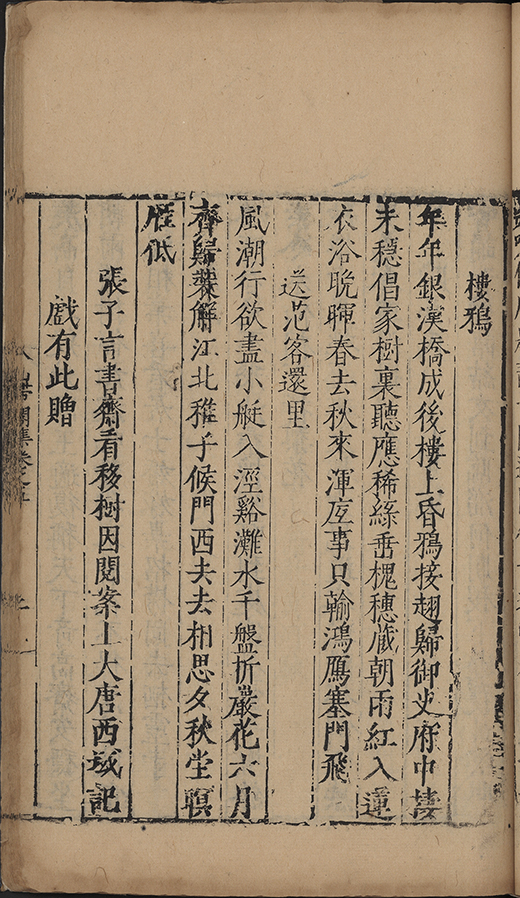 樓鴉
年年銀漢橋成後樓上昏鴉接翅歸御史府中棲
未穩倡家樹裏聽應稀綠垂槐穗藏朝雨紅入蓮
衣浴晩暉春去秋來渾度事只輸鴻鴈塞門飛
送范客還里
風潮行欲盡小艇入涇谿灘水千盤折巖花六月
齊歸橈觧江北稚子候門西夫去相思夕秋堂暝
雁低
張子言書齋看移樹因閱案上大唐西域記
戲有此贈
集卷之五